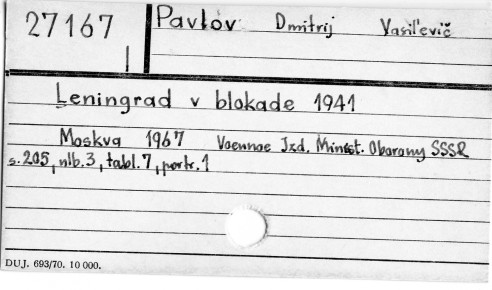 27167
Pavlov Dmitrij Vasil'evič
Leningrad v blokade 1941
Moskva 1967 Voennoe Izd. Minist. Oborony SSSR
s. 205, nlb. 3, tabl. 7, portr. 1
DUJ. 693/70. 10 000.